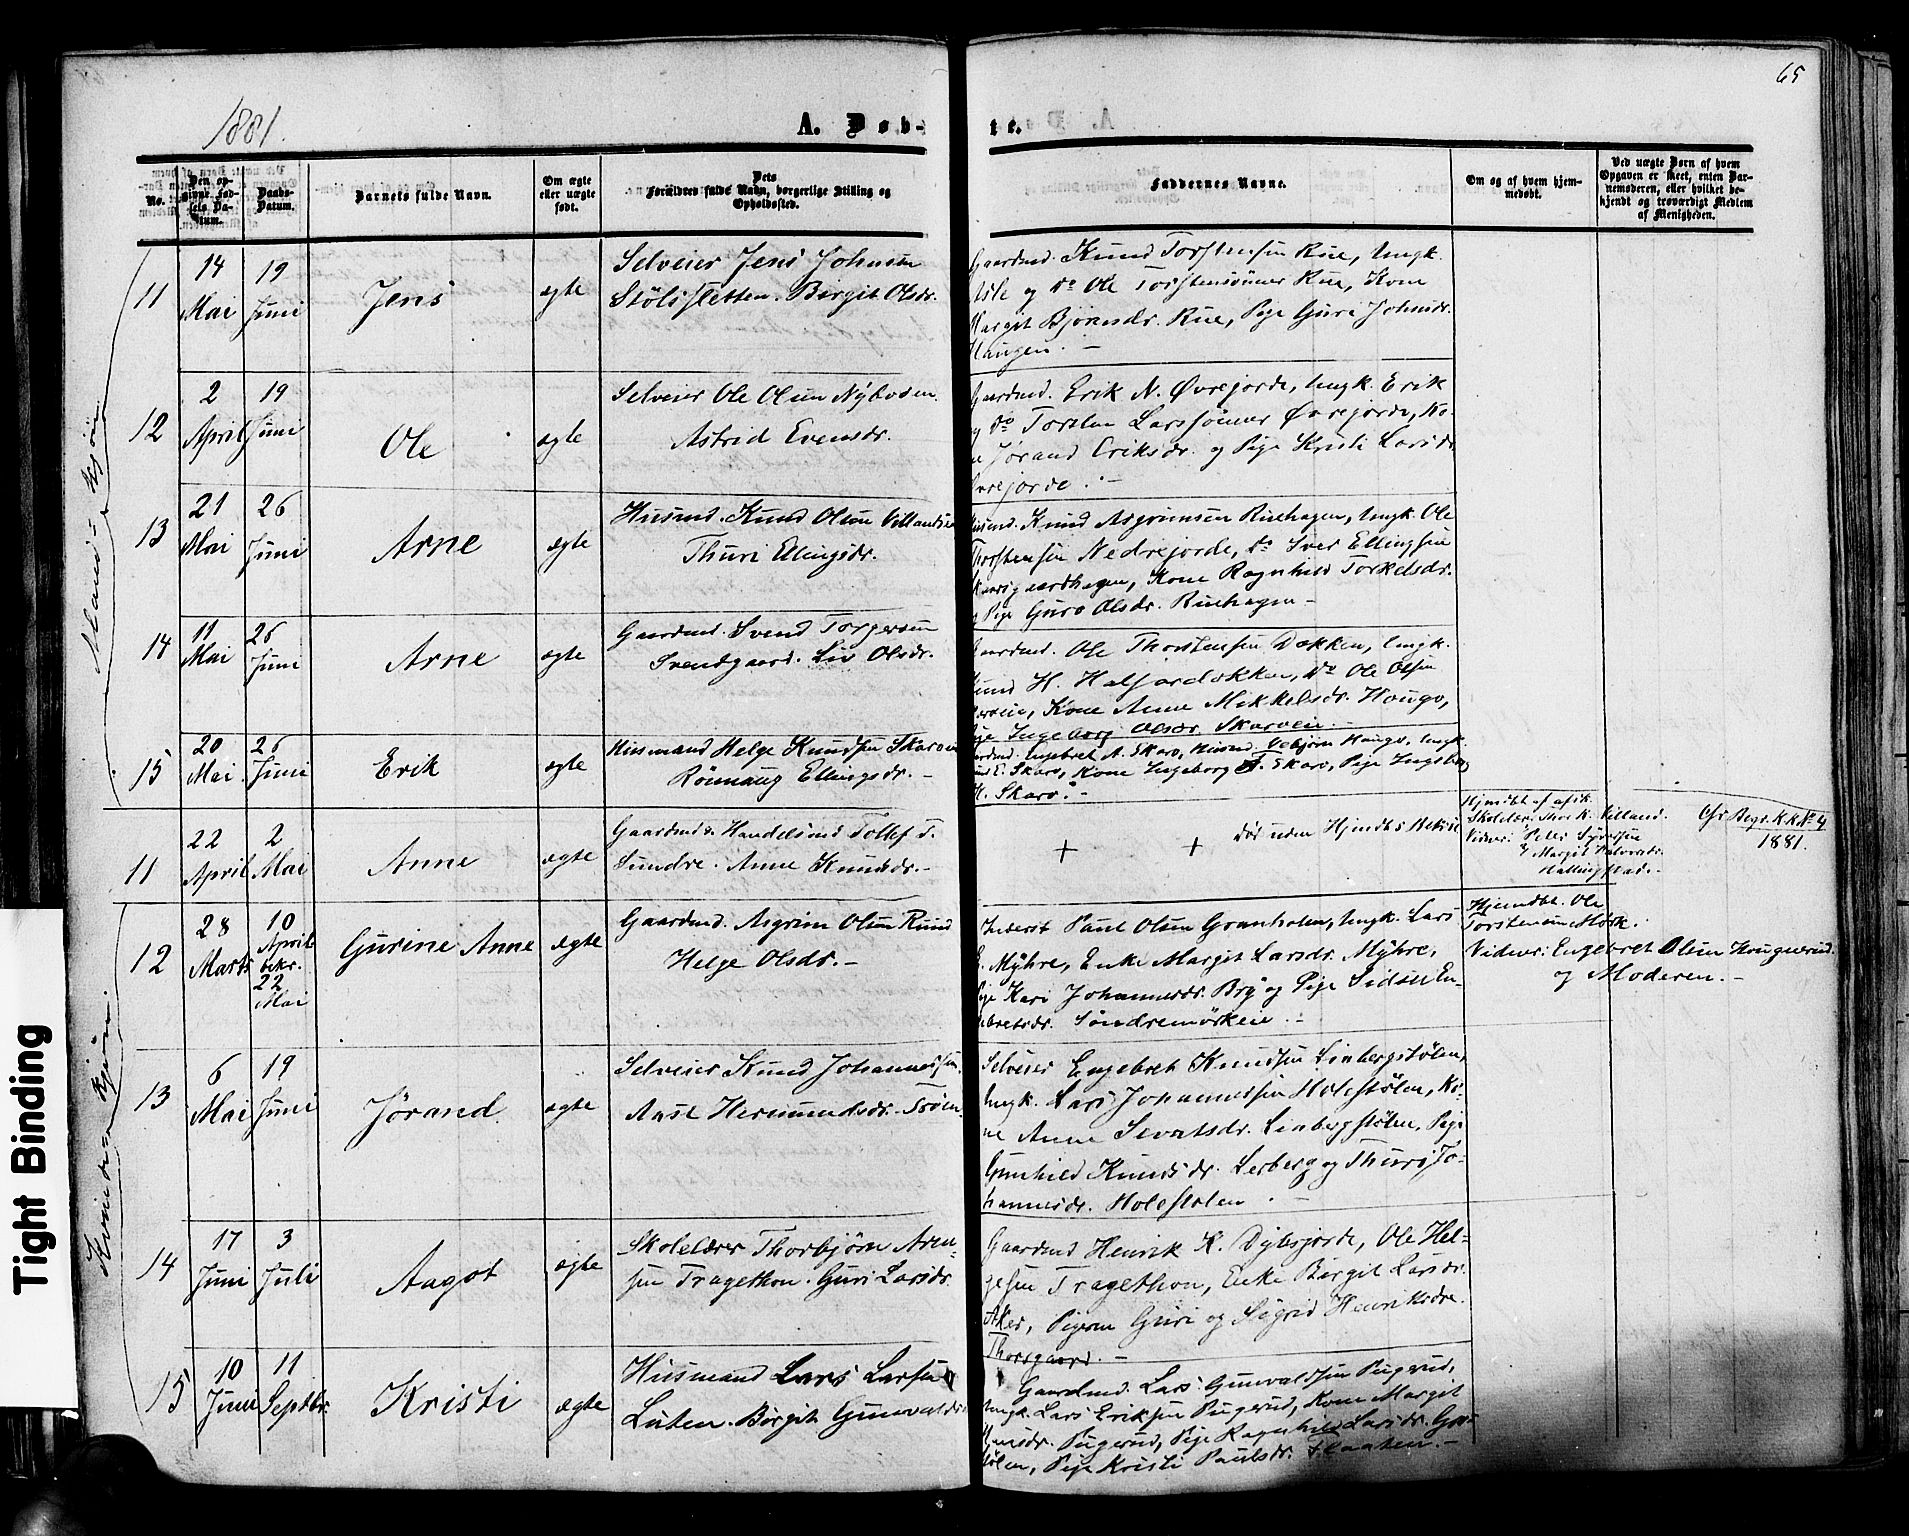 65
1881.
A. Døb-
te.
No.
Den op-
givne Fød-
sels Da-
tum.
Daabs-
Datum.
Barnets fulde Navn.
Om ægte
eller uægte
født.
Dets
Forældres fulde Navn, borgerlige Stilling og
Opholdssted.
Faddernes Navne.
Om og af hvem hjem-
medøbt.
Ved uægte Børn af hvem
Opgaven er skeet, enten Bar-
nemoderen, eller hvilket be-
kjendt og troværdigt Medlem
af Menigheden.
Mand-Kjön
11
14
Mai
19
Juni
Jens
ægte
Selveier Jens Johnsen
Stölsletten. Birgit Olsdr.
Gaardmd. Knud Torstensen Rue, Ungk.
Asle og do Ole Torstensönner Rue, Kone
Margit Bjornsdr. Rue, Pige Guri Johnsdr.
Haugen. -
12
2
April
19
Juni
Ole
ægte
Selveier Ole Olsen Nyboden.
Astrid Evensdr.
Gaardmd. Erik N. Øvrejorde, Ungk. Erik
og do Torsten Larssönner Øvrejorde, Ko-
ne Jörand Eriksdr. og Pige Kristi Larsdr.
Øvrejorde. -
13
21
Mai
26
Juni
Arne
ægte
Husmd. Knud Olsen Villandseie
Thuri Ellingsdr.
Husmd. Knud Asgrimsen Ruehagen, Ungk. Ole
Thorstensen Nedrejorde, do Iver Ellingsen
hagen, Kone Ragnhild Torkelsdr.
og Pige Guro Olsdr. Ruehagen -
14
11
Mai
26
Juni
Arne
ægte
Gaardmd. Svend Torgersen
Svendgaard. Liv Olsdr.
Gaardmd. Ole Thorstensen Dokken, Ungk.
Knud H. , do Ole Olsen
Kone Anne Mikkelsdr. Haugo,
Pige Ingeborg Olsdr. Skaroeie. -
15
20
Mai
26
Juni
Erik
ægte
Husmand Helge Knudsen Skaroeie
Rönnaug Ellingsdr. -
Gaardmd. Engebret A. Skaro, Husmd. Vebjörn Haugo, Ungk.
E. Skaro, Kone Ingeborg T. Skaro, Pige Ingeborg
H. Skaro. -
Kvinde-Kjön
11
22
April
2
Mai
Anne
ægte
Gaardmd. Handelsmd Tollef T.
Sundre. Anne Knudsdr. -
+ + död uden Hjmdbs Bekr.
Hjemdbt af afsk.
Skolelær. Thor K. Villand.
Vidner: Peter
og Margit Halvorsdr.
Cfr Begr. K.K. No 4
1881.
12
28
Marts
10
April
bekr.
22
Mai
Gurine Anne
ægte
Gaardmd. Asgrim Olsen Ruud
Helge Olsdr. -
Inderst Paul Olsen Granholen, Ungk. Lars
E. Myhre, Enke Margit Larsdr. Myhre,
Pige Kari Johannesdr. Bry og Pige Sidsel En-
gebretsdr. Söndremörkeie. -
Hjemdbt. Ole
Torstensen Mörk.
Vidner: Engebret Olsen Haugerud
og Moderen. -
13
6
Mai
19
Juni
Jørand
ægte
Selveier Knud Johannessen.
Aase Hermundsdr. Tröen
Selveier Engebret Knudsen Linbergstölen,
Ungk. Lars Johannessen Holestölen, Ko-
ne Anne Sevatsdr. Linbergstölen, Pige
Gunhild Knudsdr. Lerberg og Thuri Jo-
hannesdr. Holestolen. -
14
17
Juni
3
Juli
Aagot
ægte
Skolelærer Thorbjörn Arne-
sen Tragethon. Guri Larsdr.
Gaardmd Henrik K. Dybsjorde, Ole Hel-
gesen Tragethon, Enke Birgit Larsdr.
Aker, Pigerne Guri og Sigrid Henriksdre.
Thorsgaard. -
15
10
Juni
11
Septbr.
Kristi
ægte
Husmand Lars Larsen
Luten. Birgit Gunvaldsdr.
Gaardmd. Lars Gunvaldsen Pugerud,
Ungk. Lars Eriksen Pugerud, Kone Margit
Pugerud, Pige Ragnhild Larsdr.
Pige Kristi Paulsdr. Flaaten. -
Tight Binding